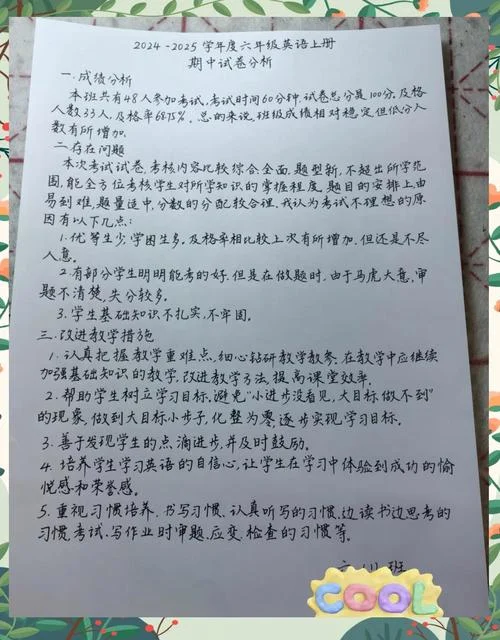 2024-2025学年度六年级英语上册
期中试卷分析
一.成绩分析
本班共有48人参加考试,考试时间60分钟,试卷总分是100分.及格
人数33人,及格率68.75%. 总的来说,班级成绩相对稳定,但低分人
数有所增加.
二存在问题
本次考试试卷,考核内容比较综合全面,题型新,不超出所学范
围,能全方位考核学生对所学知识的掌握程度,题目的安排上由
易到难,题量适中,分数的分配较合理.我认为考试不理想的原
因有以下几点:
1.优等生少,学困生多,及格率相比较上次有所增加,但还是不尽
人意。
2.有部分学生明明能考的好,但是在做题时,由于马虎大意,审
题不清楚,失分较多。
3.学生基础知识不扎实,不牢固。
三.改进教学措施
1.认真把握教学重难点,细心钻研教学教参,在教学中应继续
加强基础知识的教学,改进教学方法,提高课堂效率.
2.帮助学生树立学习目标,避免"小进步没看见,大目标做不到"
的现象,做到大目标小步子,化整为零,逐步实现学习目标.
3.善于发现学生的点滴进步,并及时鼓励。
4.培养学生学习英语的自信心,让学生在学习中体验到成功的愉
悦感和荣誉感。
5.重视习惯培养.书写习惯.认真听写的习惯.边读书边思考的
习惯,考试.写作业时审题.应变.检查的习惯等。
班
COOL